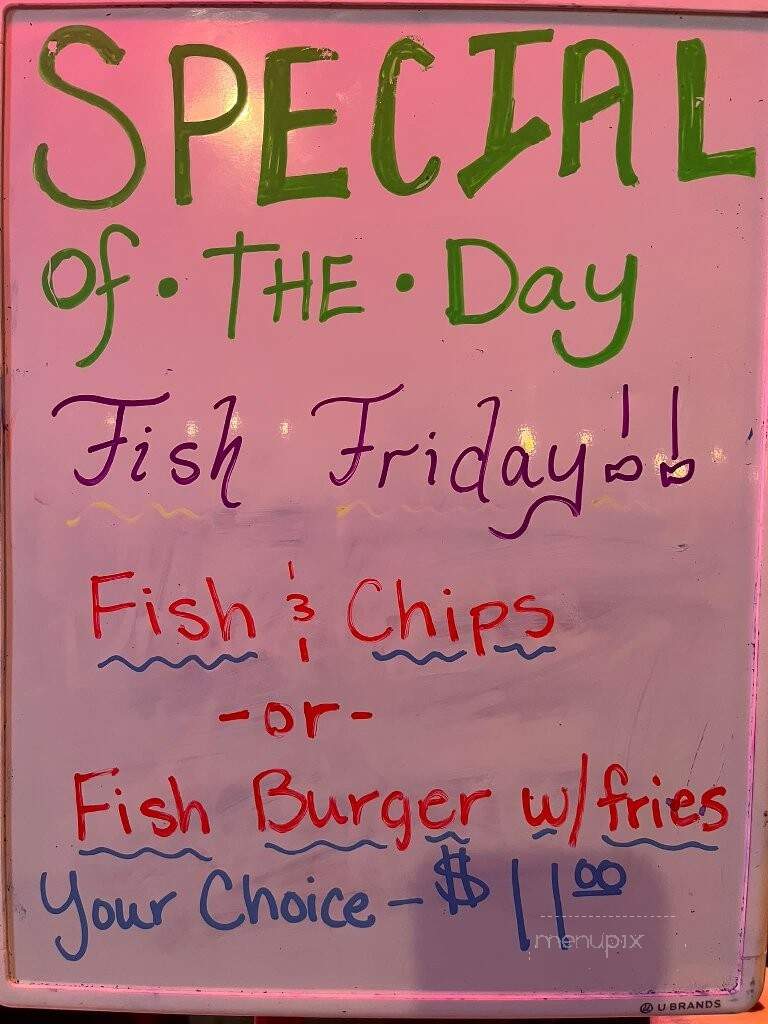 SPECIAL
of • THE • Day
Fish Friday!!
Fish & Chips
-or-
Fish Burger w/fries
Your Choice - $11.00
menupix
U BRANDS